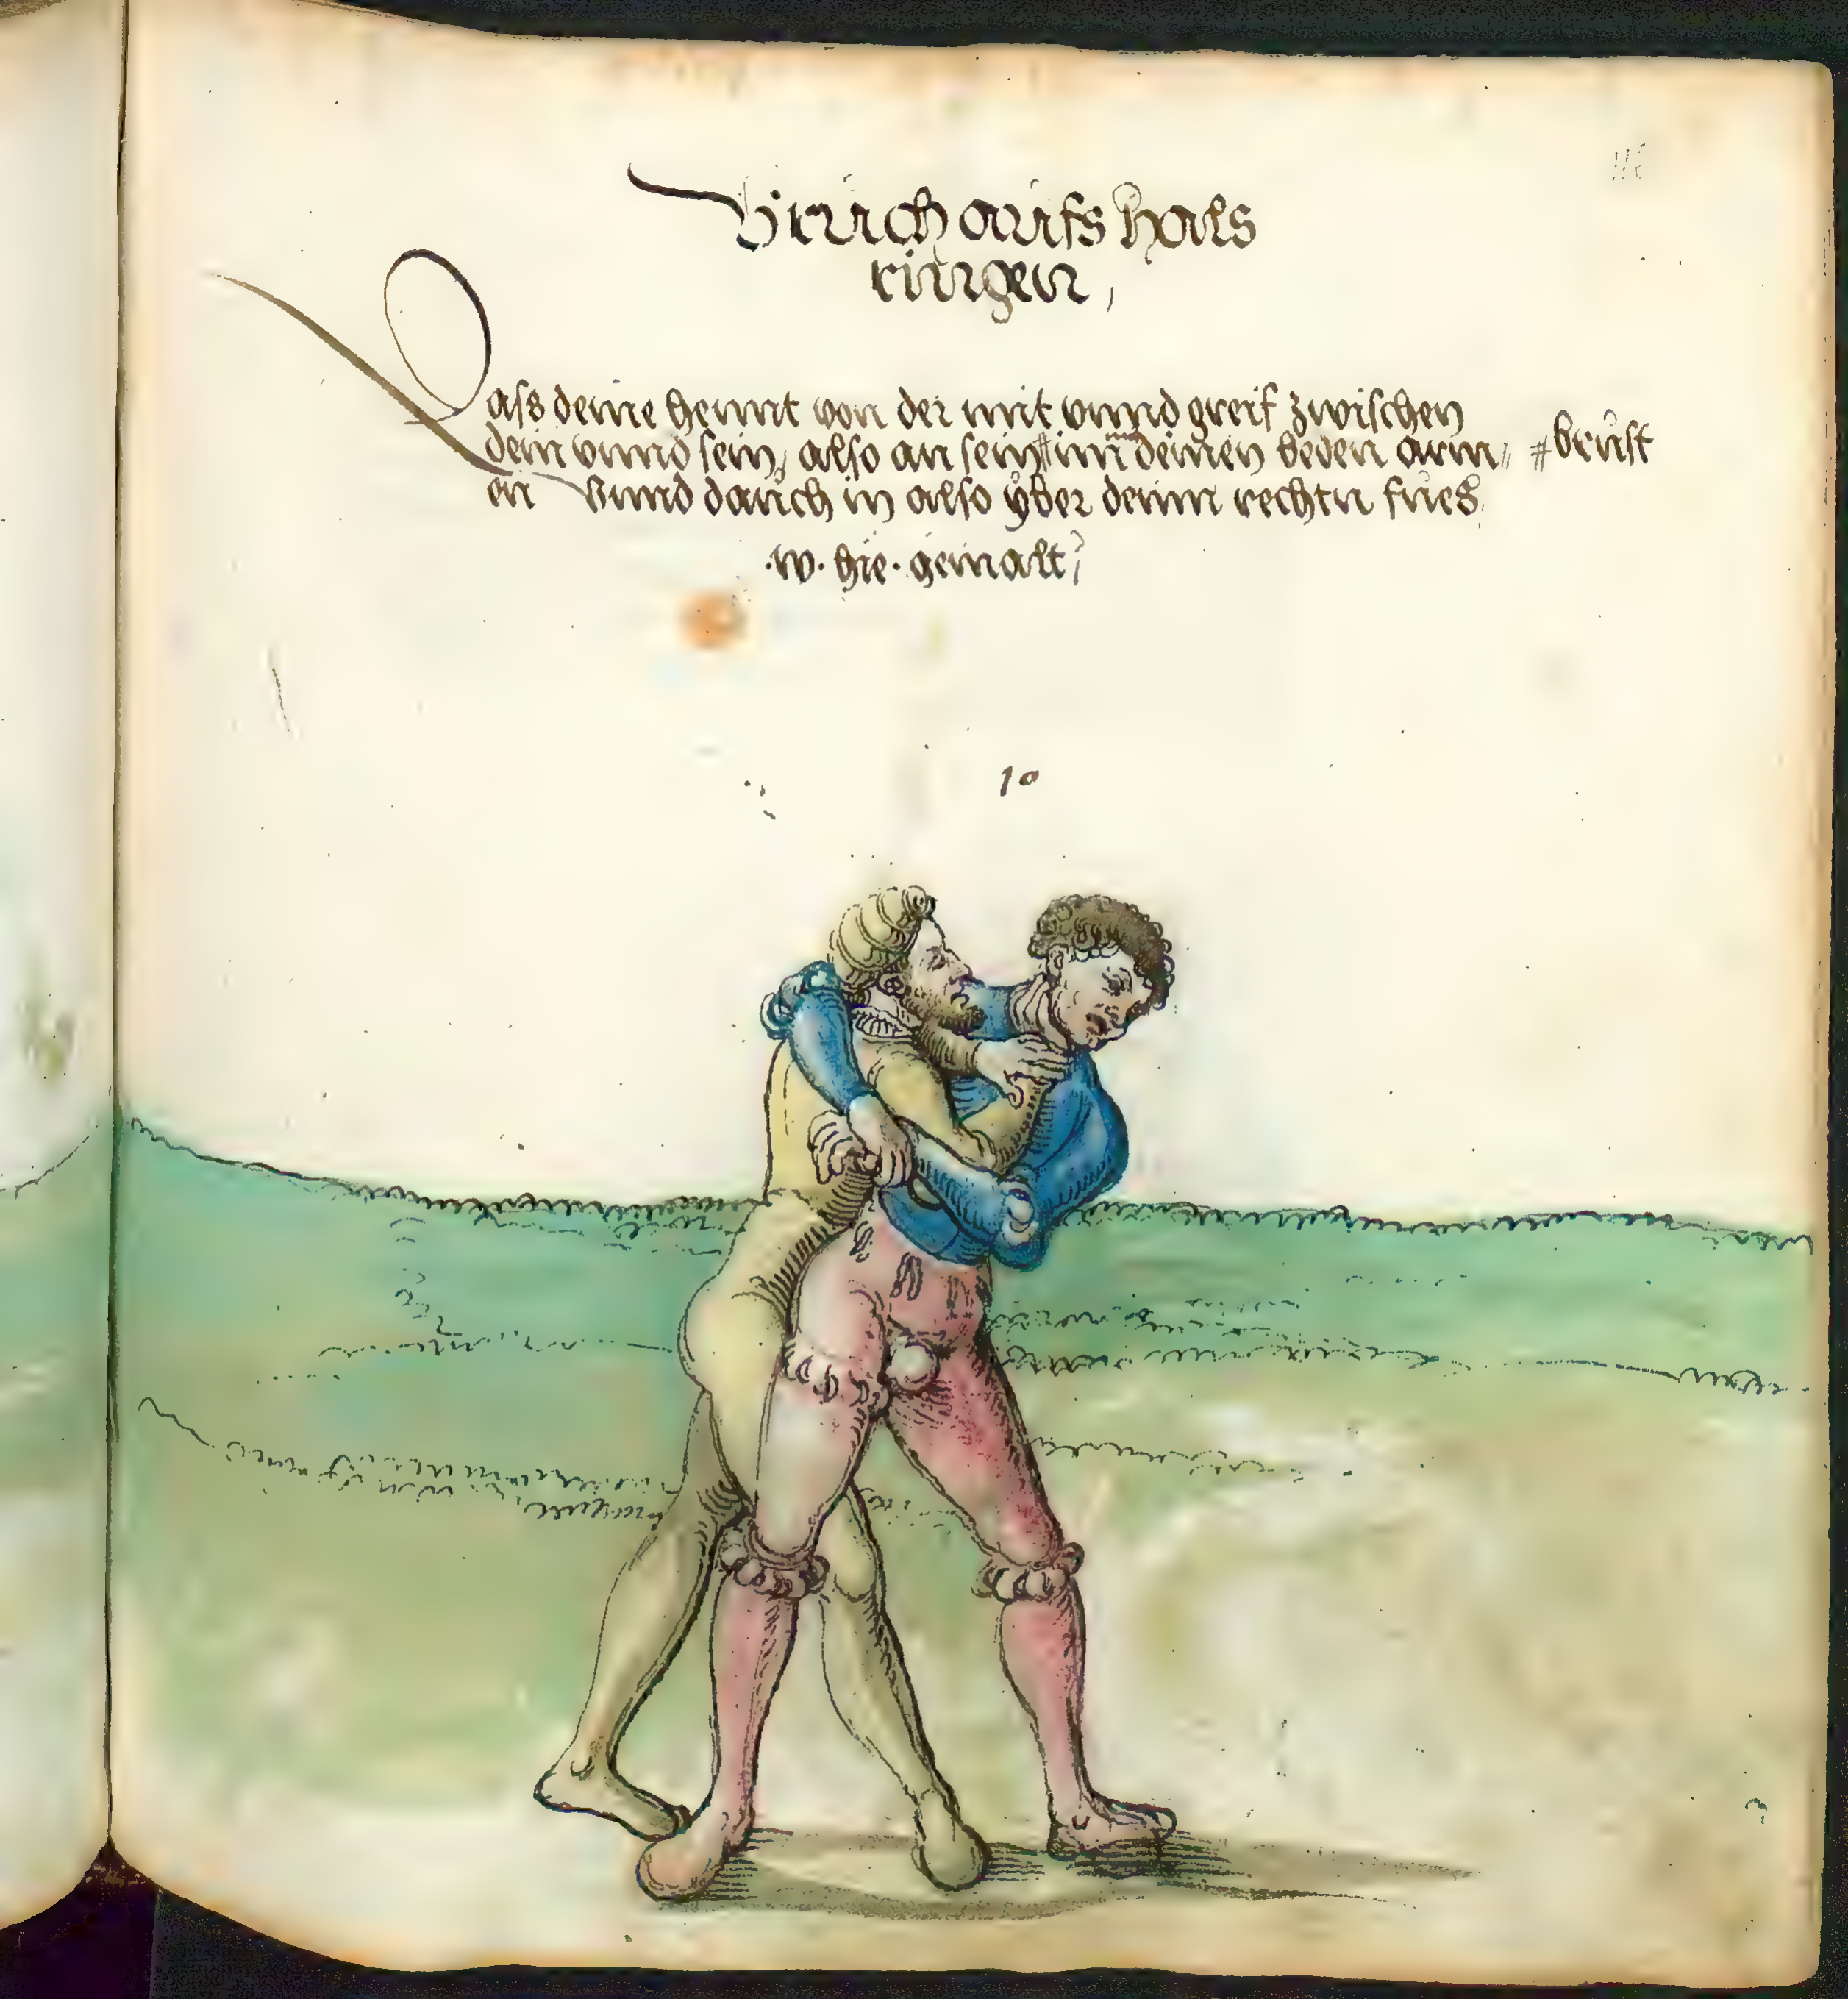 Bruch aufs hals
ringen,
Lass deine hennt von der mit vnnd greif zwischen
dein vnnd sein, also an sein # inn deinen beden arm〃 # brust
en Vnnd dauch in also yber deinn rechtn fues
.w. hie. gemalt,
10